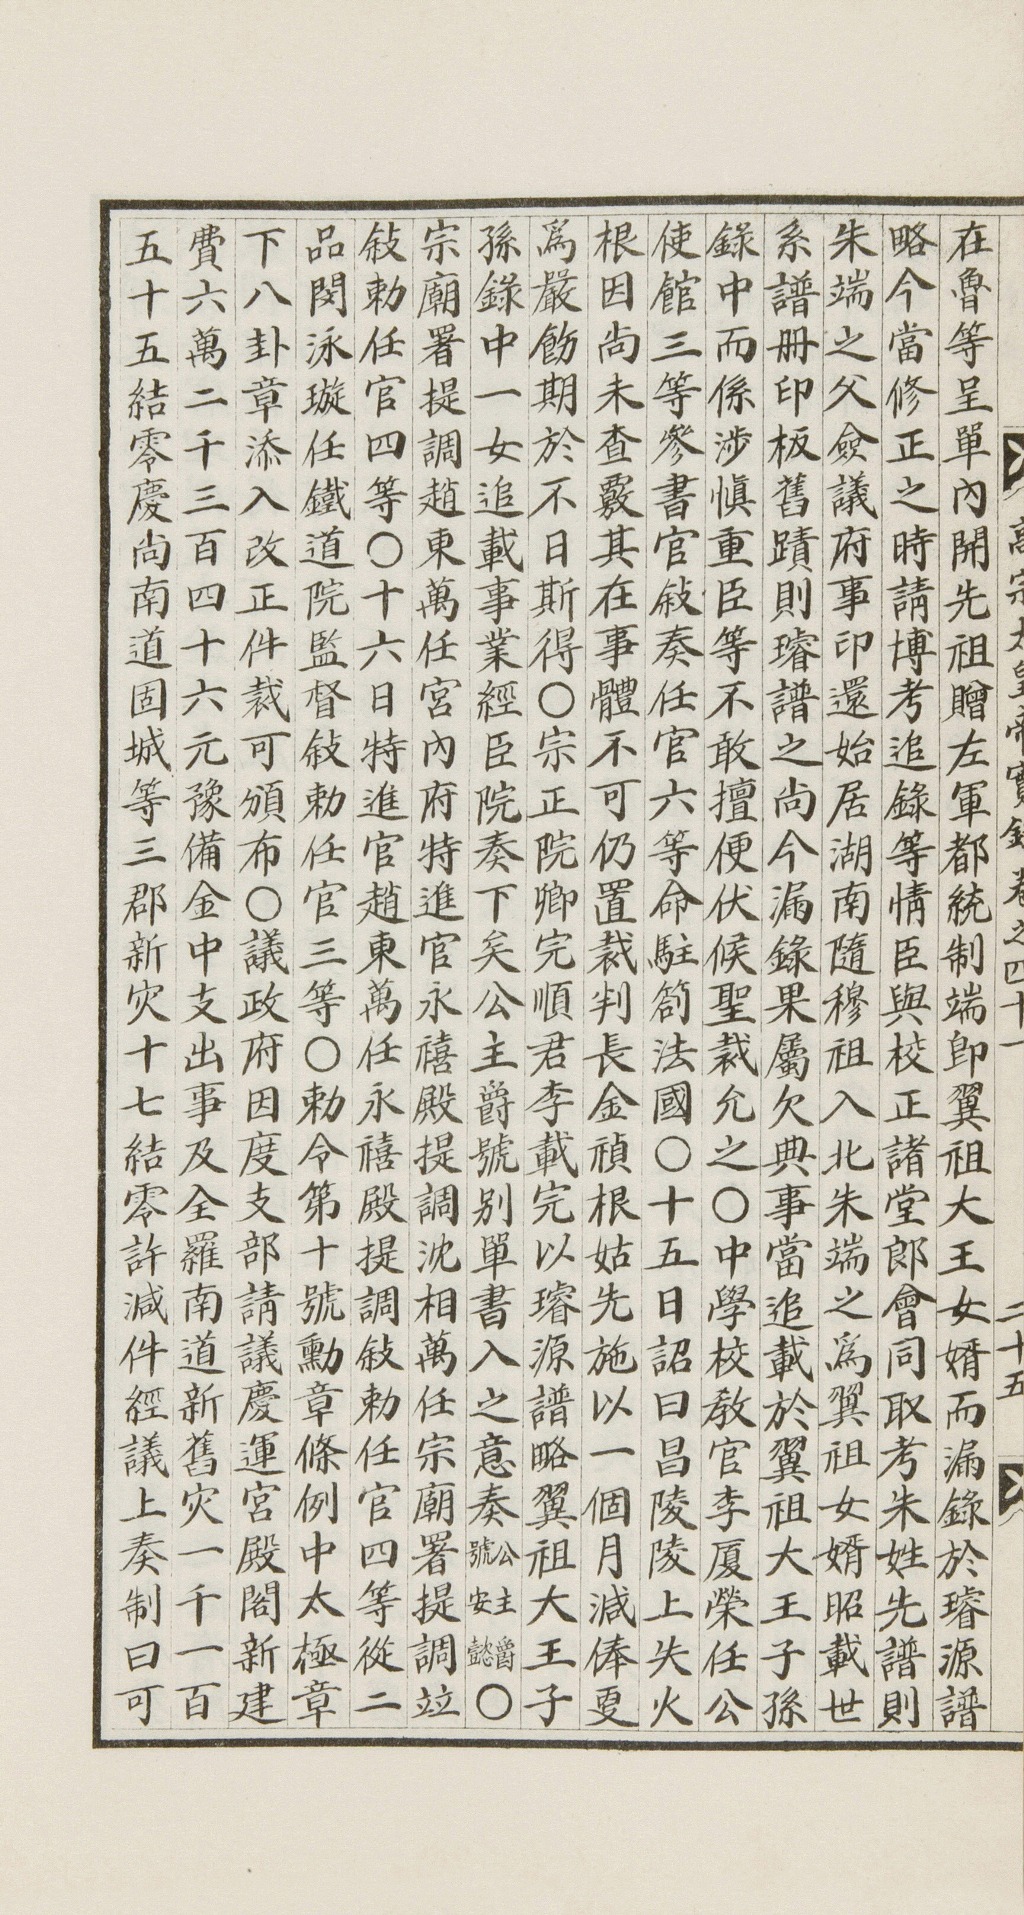 高宗太皇帝實錄卷之四十一 二十五
在魯等呈單內開先祖贈左軍都統制端卽翼祖大王女婿而漏錄於璿源譜
略今當修正之時請博考追錄等情臣與校正諸堂郎會同取考朱姓先譜則
朱端之父僉議府事印還始居湖南隨穆祖入北朱端之爲翼祖女婿昭載世
系譜冊印板舊蹟則璿譜之尙今漏錄果屬欠典事當追載於翼祖大王子孫
錄中而係涉愼重臣等不敢擅便伏候聖裁允之○中學校敎官李厦榮任公
使館三等參書官敍奏任官六等命駐箚法國○十五日詔曰昌陵陵上失火
根因尙未查覈其在事體不可仍置裁判長金禎根姑先施以一個月減俸更
爲嚴飭期於不日斯得○宗正院卿完順君李載完以璿源譜略翼祖大王子
孫錄中一女追載事業經臣院奏下矣公主爵號別單書入之意奏公主爵號安懿○
宗廟署提調趙東萬任宮內府特進官永禧殿提調沈相萬任宗廟署提調竝
敍勅任官四等○十六日特進官趙東萬任永禧殿提調敍勅任官四等從二
品閔泳璇任鐵道院監督敍勅任官三等○勅令第十號勳章條例中太極章
下八卦章添入改正件裁可頒布○議政府因度支部請議慶運宮殿閣新建
費六萬二千三百四十六元豫備金中支出事及全羅南道新舊灾一千一百
五十五結零慶尙南道固城等三郡新灾十七結零許減件經議上奏制曰可